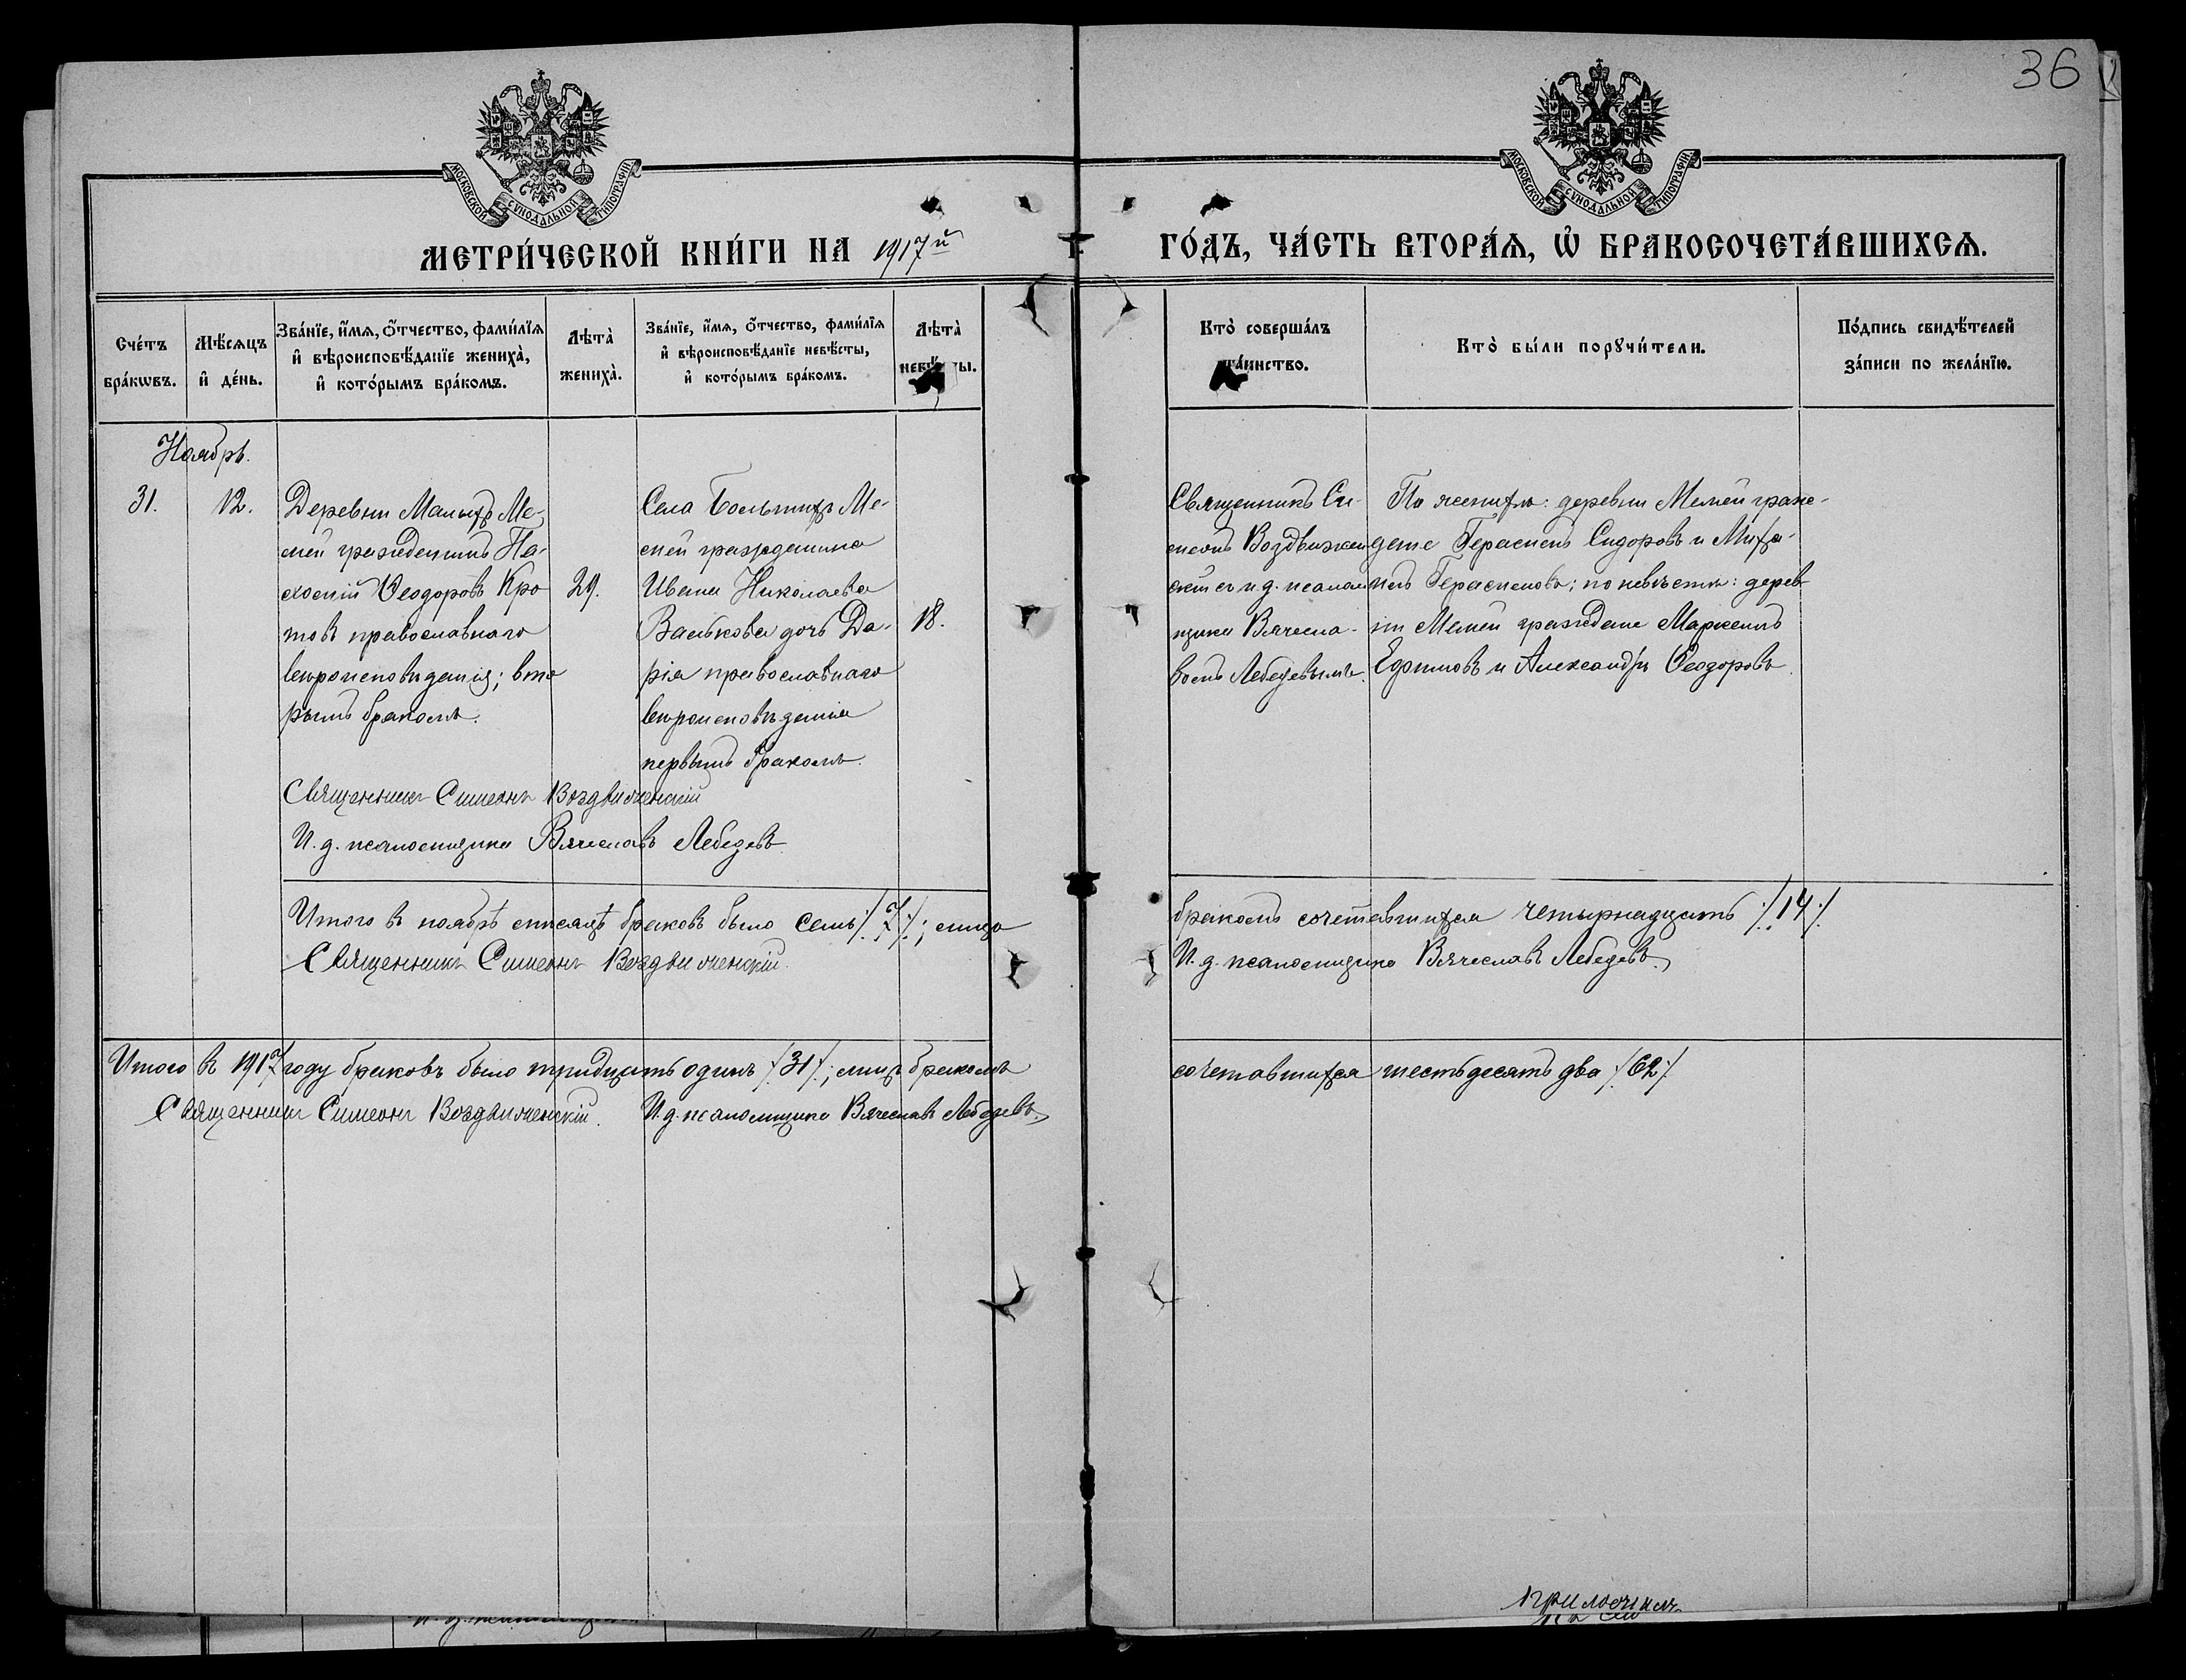 36
МОСКОВСКОЙ СѴНОДАЛЬНОЙ ТИПОГРАФІИ
МОСКОВСКОЙ СѴНОДАЛЬНОЙ ТИПОГРАФІИ
МЕТРИ́ЧЕСКОЙ КНИ́ГИ НА 1917й
ГО́ДЪ, ЧА́СТЬ ВТОРА́Ѧ, Ѽ БРАКОСОЧЕТА́ВШИХСѦ.
Сче́тъ бра́кѡвъ.
Мѣ́сѧцъ и҆ де́нь.
Зва́нїе, и҆́мѧ, ѻ҆́тчество, фами́лїѧ
и҆ вѣроисповѣ́данїе жениха̀,
и҆ кото́рымъ бра́комъ.
Лѣта̀
жениха̀.
Зва́нїе, и҆́мѧ, ѻ҆́тчество, фами́лїѧ
и҆ вѣроисповѣ́данїе невѣ́сты,
и҆ кото́рымъ бра́комъ.
Лѣта̀
невѣ́сты.
Кто̀ соверша́лъ
та́инство.
Кто̀ бы́ли порꙋчи́тели.
По́дпись свидѣ́телей
за́писи по жела́нїю.
Ноябрь.
31.
12.
Деревни Малыхъ Ме-
мей гражденинъ Па-
хомій Ѳеодоровъ Кро
товъ православнаго
вѣроисповѣданія; вто
рымъ бракомъ.
29.
Села Большихъ Ме-
мей гражданина
Ивана Николаева
Валькова дочь Да-
рія православнаго
вѣроисповѣданія
первымъ бракомъ.
18.
Священникъ Си-
меонъ Воздвижен
скій съ и.д. псалом
щика Вячесла-
вомъ Лебедевымъ.
По женихѣ: деревни Мемей граж-
дане Герасимъ Сидоровъ и Миха-
илъ Герасимовъ; по невѣстѣ: дерев-
ни Мемей граждане Маркелъ
Ефимовъ и Александръ Ѳеодоровъ.
Священникъ Симеонъ Воздвиженскій
И. д. псаломщика Вячеславъ Лебедевъ
Итого въ ноябрѣ мѣсяцѣ браковъ было семь /7/; лицъ
бракомъ сочетавшихся четырнадцать /14/
Священникъ Симеонъ Воздвиженскій.
И. д. псаломщика Вячеславъ Лебедевъ.
Итого въ 1917 году браковъ было тридцать одинъ /31/; лицъ бракомъ
сочетавшихся шестьдесятъ два /62/
Священникъ Симеонъ Воздвиженскій. И. д. псаломщика Вячеславъ Лебедевъ.